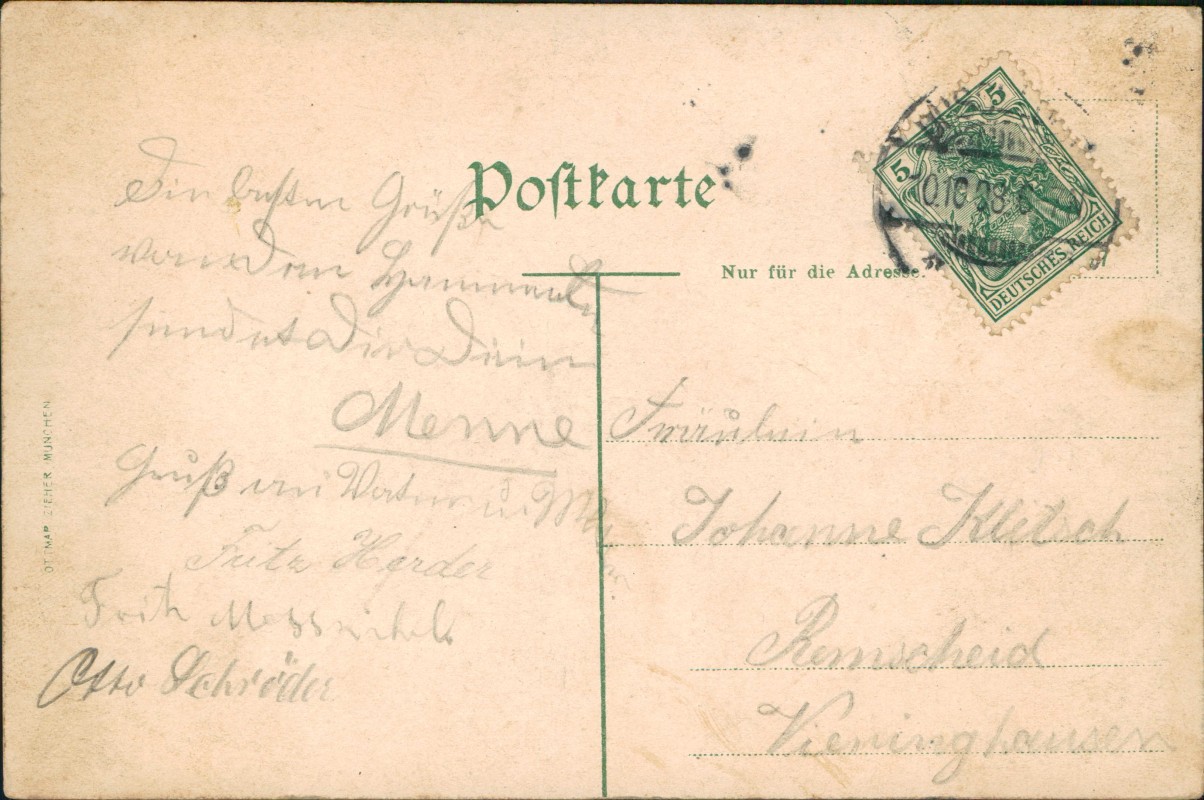 Postkarte
Nur für die Adresse.
5
5
DEUTSCHES REICH
Die besten Grüße
von den
sendet Dir Dein
Menne
Gruß an Vater u.
Fritz Herder
Fritz
Otto Schröder
Fräulein
Johanne Kletsch
Remscheid
Vieringhausen
OTTMAR ZIEHER MÜNCHEN